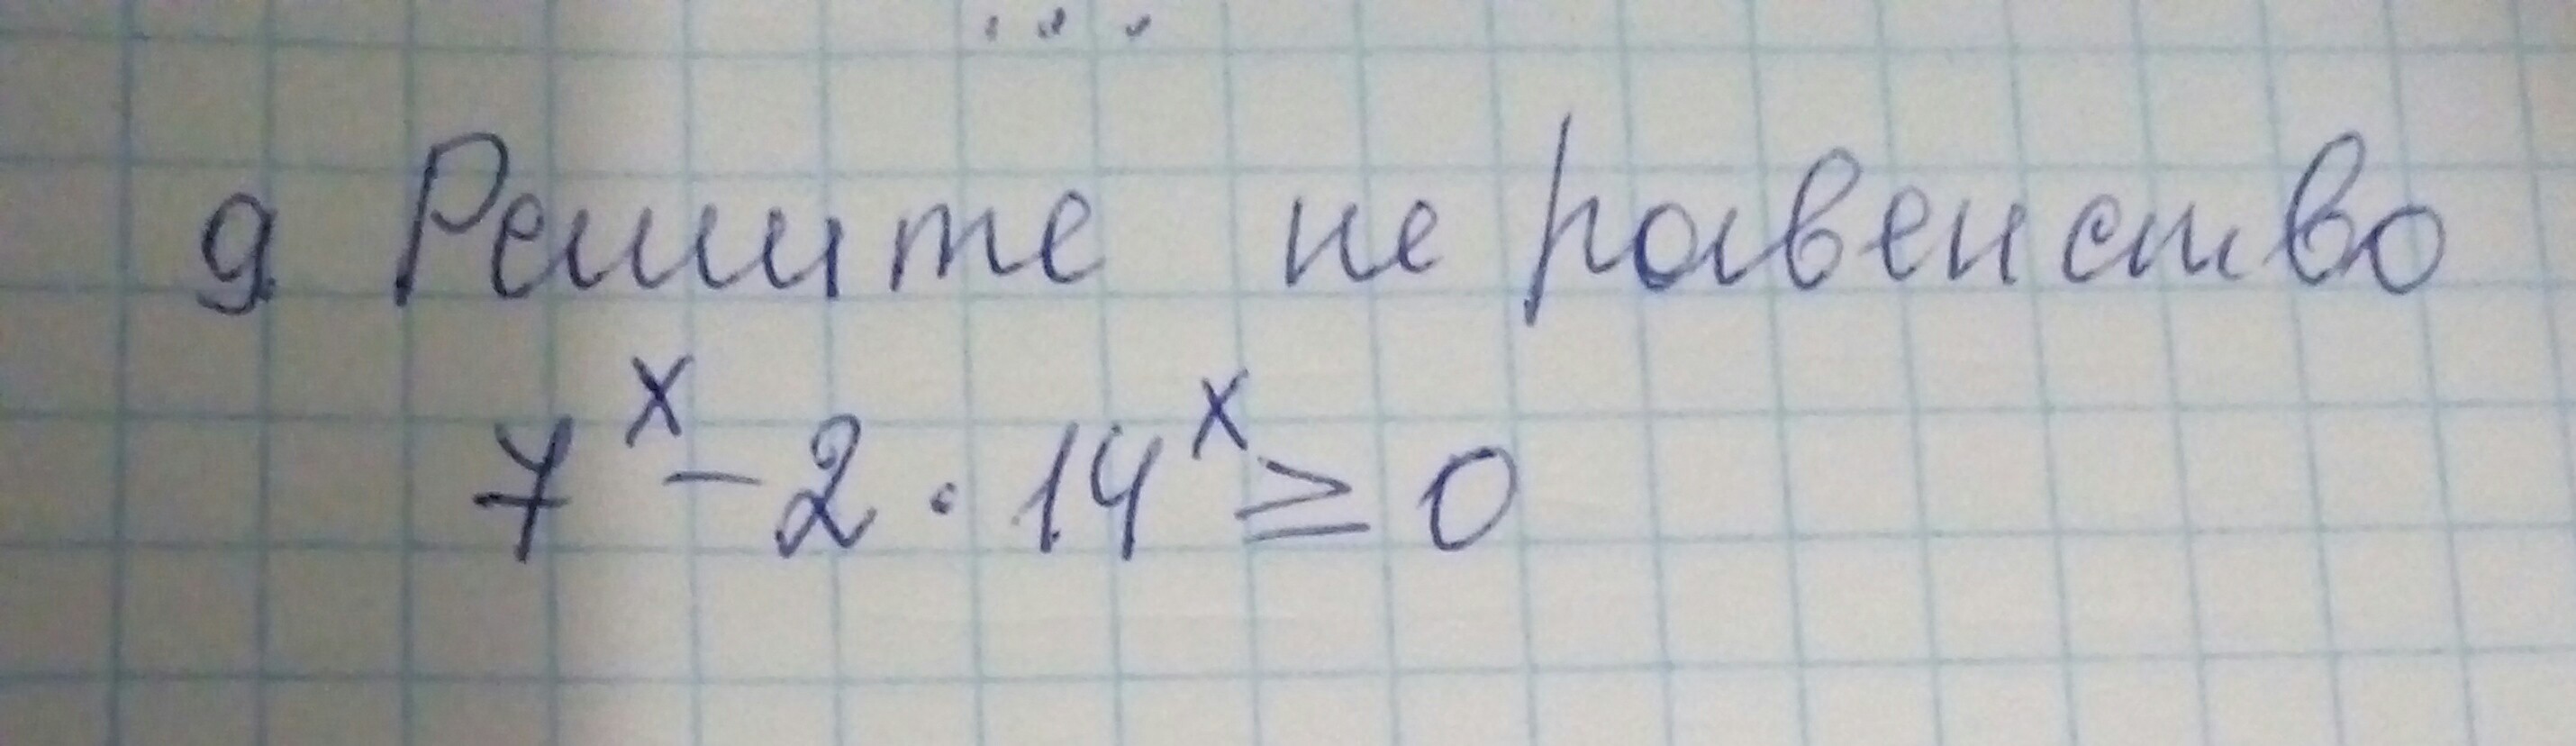 9 Решите не равенство
7^x - 2 · 14^x ≥ 0